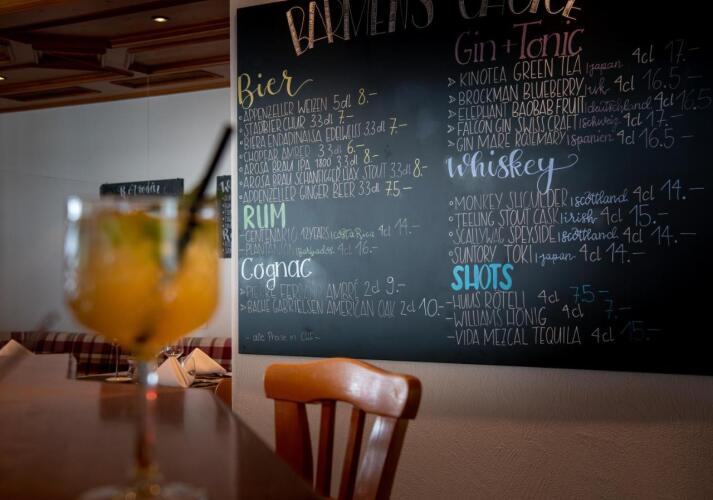 BARMEN'S CHOICE
Bier
◦ APPENZELLER WEIZEN 5dl 8.-
◦ STADTBIER CHUR 33dl 7.-
◦ BIERA ENGIADINAISA EDELWEISS 33dl 7.-
◦ CHOPFAB AMBER 33dl 6.-
◦ AROSA BRÄU IPA 1800 33dl 8.-
◦ AROSA BRÄU SCHANFIGGER HAX STOUT 33dl 8.-
◦ APPENZELLER GINGER BEER 33dl 7.5.-
RUM
- CENTENARIO 12YEARS | Costa Rica 4cl 14.-
- PLANTATION 4cl 16.-
Cognac
> PIERRE FERRAND AMBRÉ 2cl 9.-
> BACHE GABRIELSEN AMERICAN OAK 2cl 10.-
- alle Preise in CHF -
Gin + Tonic
> KINOTEA GREEN TEA | japan 4cl 17.-
> BROCKMAN BLUEBERRY | uk 4cl 16.5.-
> ELEPHANT BAOBAB FRUIT | deutschland 4cl 16.5
> FALCON GIN SWISS CRAFT | schweiz 4cl 17.-
> GIN MARE ROSEMARY | spanien 4cl 16.5.-
Whiskey
◦ MONKEY SHOULDER | scottland 4cl 14.-
◦ TEELING STOUT CASK | irish 4cl 15.-
◦ SCALLYWAG SPEYSIDE | scottland 4cl 14.-
◦ SUNTORY TOKI | japan 4cl 14.-
SHOTS
- HUUS RÖTELI 4cl 7.5.-
- WILLIAMS HONIG 4cl 7.-
- VIDA MEZCAL TEQUILA 4cl 15.-